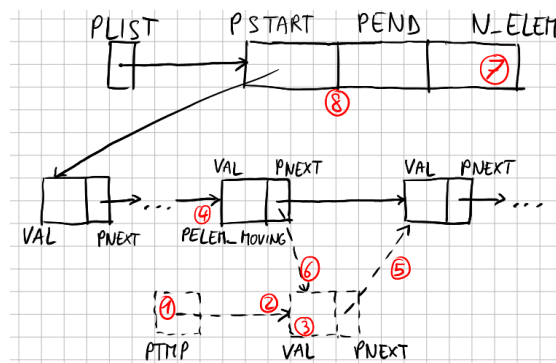 PLIST PSTART PEND N_ELEM
7
8
VAL PNEXT VAL PNEXT
... ...
4
VAL PNEXT PELEM_MOVING
6 5
1 2
3
PTMP VAL PNEXT